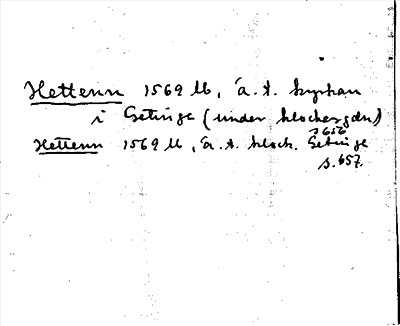 Hettenn 1569 ll, ä. t. kyrkan
i Getinge (under klockaregdn)
s 656
Hettenn 1569 ll, ä. t. klock. Getinge
s. 657.